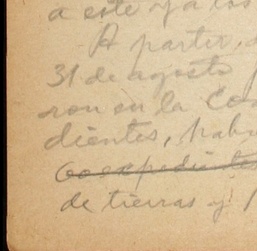 a este y a los
A partir,
31 de agosto
ron en la Co
dientes, hab
60 expedientes
de tierras y